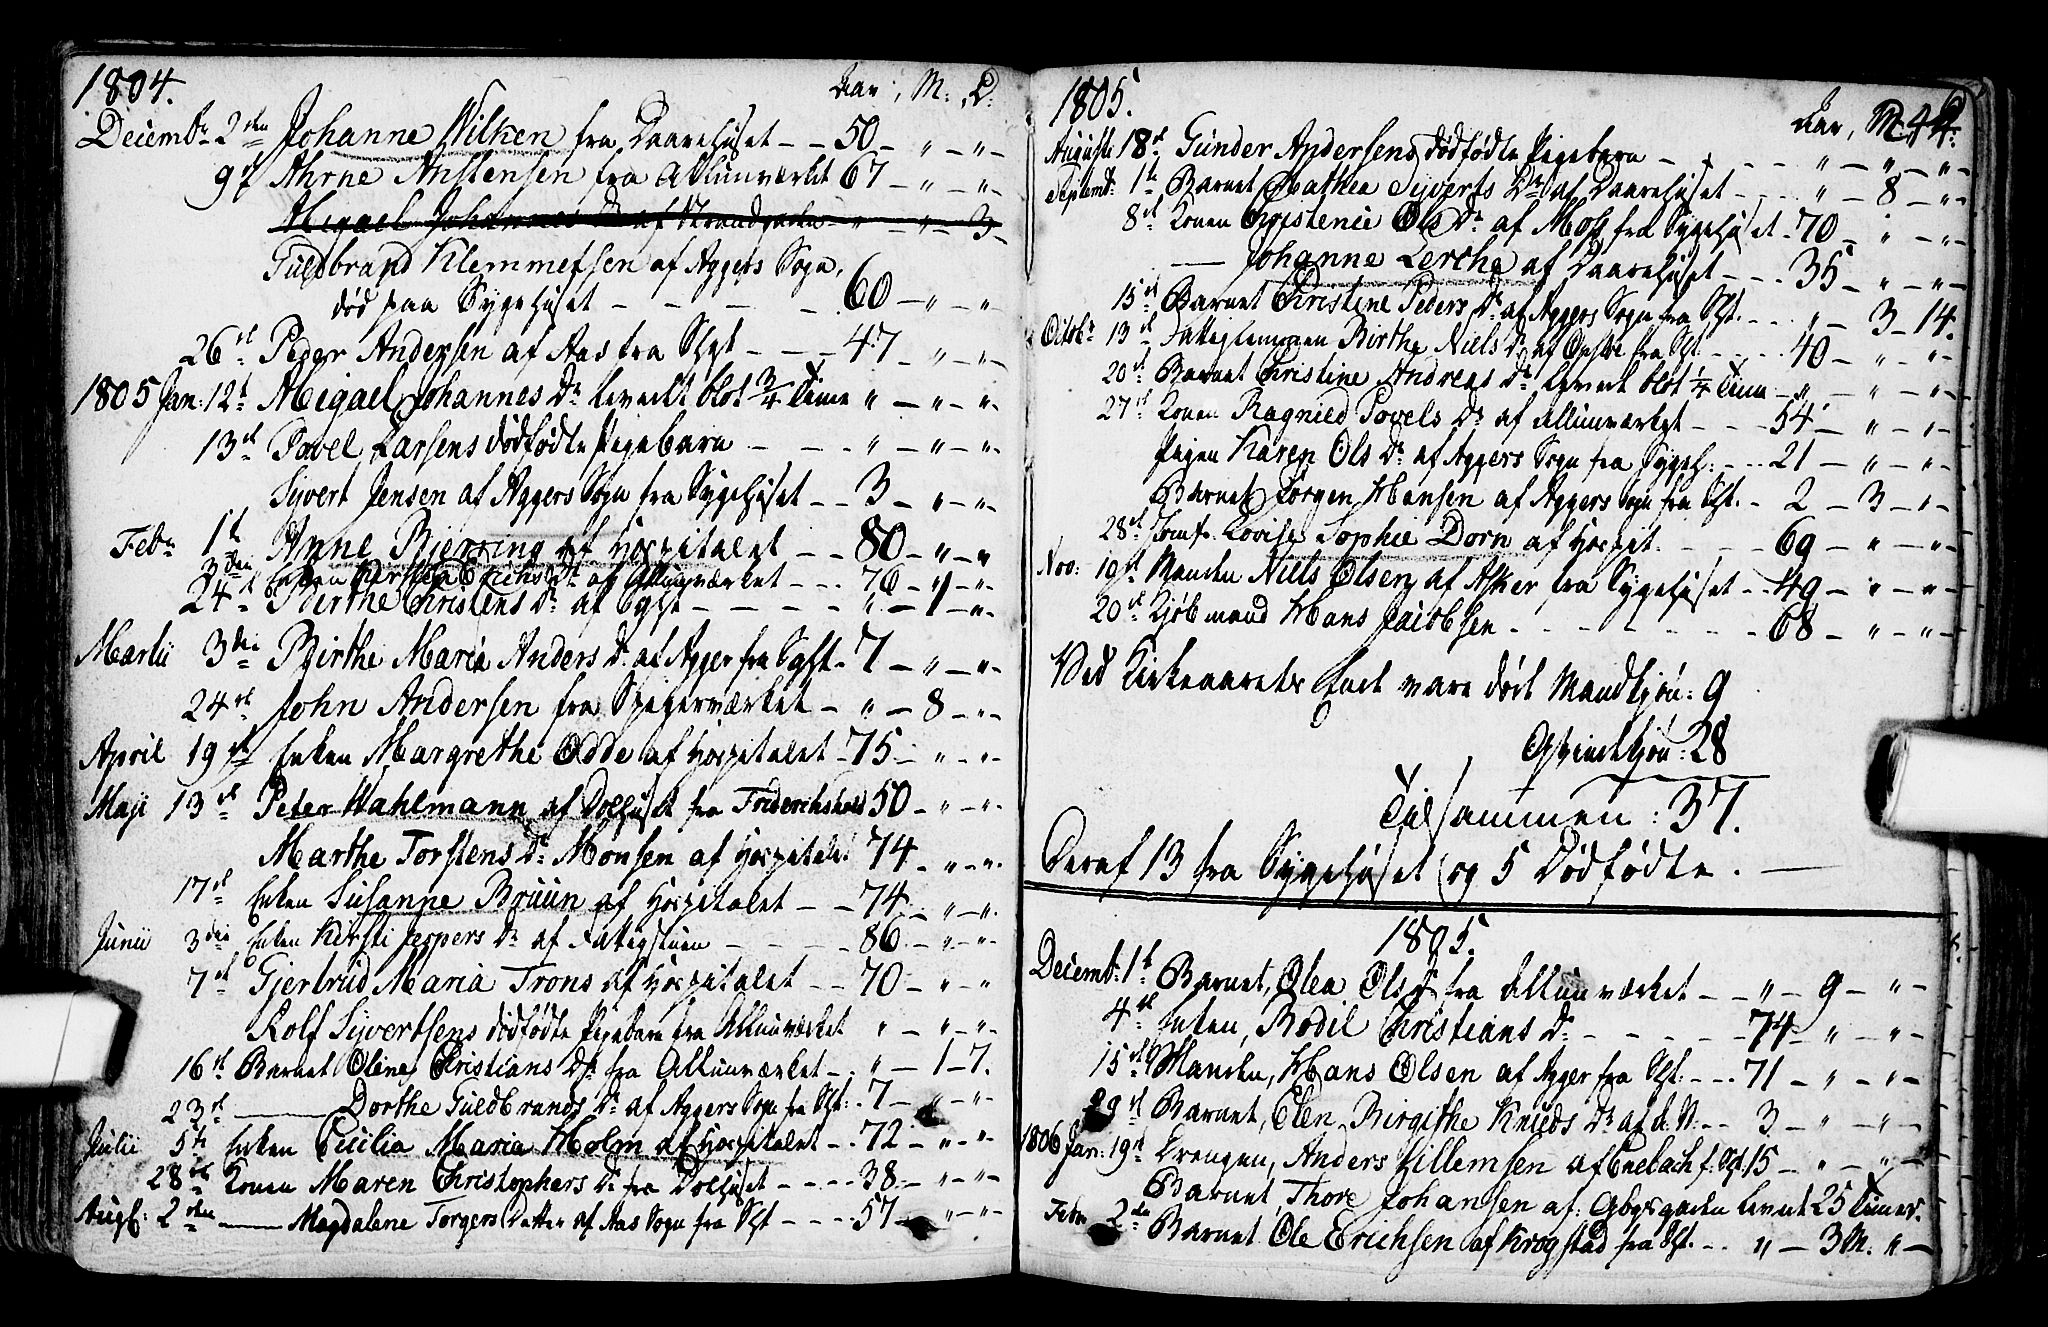 1804. Aar, M: D:
Decembr 2den Johanne Wilken fra Daarehuset - - 50 - " - " -
9d Ahrne Anstensen fra Allunværket 67 - " - " -
Migael Johannes Dr af Strandgaden - " - " - 3 -
Guldbrand Klemmetsen af Aggers Sogn,
død paa Sygehuset - - - - 60 - " - "
26de Peder Andersen af Aas fra Sygt - - - 47 - " - "
1805 Jan: 12t Migael Johannes Dr levedt blot 3/4 Time " - " - "
13de Povel Larsens dødfødte Pigebarn - - - " - " - "
Syvert Jensen af Aggers Sogn fra Sygehuset - - 3 - " - "
Febr 1t Anne Bjerring af Hospitalet - - 80 - " - "
3den Enken Kirsten Erichs Dr af Allunværket - - - 76 - " - "
24de Berthe Christens Dr af Sgst - - - - " - 1 - "
Martii 3die Birthe Maria Anders Dr af Agger fra Sgst - 7 - " - "
24de John Andersen fra Spigerværket - " - 8 - "
April 19de Enken Margrethe Odde af Hospitalet - 75 - " - "
Maji 13de Peter Wahlmann af Dolhuset fra Friderichshald 50 - " - "
Marthe Torstens Dr Monsen af Hospitalet 74 - " - "
17de Enken Susanne Bruun af Hospitalet - - 74 - " - "
Junii 3die Enken Kirsti Jespers Dr af Fattigstuen - - - 86 - " - "
7de Gjertrud Maria Trons af Hospitalet - - 70 - " - "
Rolf Syvertsens dødfødte Pigebarn fra Allunværket " - " - "
16de Barnet Oline Christians Dr fra Allunværket - " - 1 - 7.
23de —— Dorthe Guldbrands Dr af Aggers Sogn fra Sgst: - 7 - " - "
Julii 5te Enken Cecilia Maria Holm af Hospitalet - - 72 - " - "
28de Konen Maren Christophers Dr fra Dolhuset - - - - 38 - " - "
Augst: 2den —— Magdalene Torgers Datter af Aas Sogn fra Sgst - - - - 57 - " - "
1805. Aar, M: D: 44.
Augusti 18de Gunder Andersens dødfødte Pigebarn - - - " - " - "
Septemb: 1te Barnet Mathea Syverts Dr af Daarehuset - - - " - 8 - "
8de Konen Christence Ols Dr af Moss fra Sygehuset - 70 - " - "
—— Johanne Lerche af Daarehuset - - - 35 - " - "
15de Barnet Christine Peders Dr af Aggers Sogn fra Sgst. - - - " - 3 - 14.
Octobr 13de Fattiglemmen Birthe Niels Dr af fra Sgst - - - 40 - " - "
20de Barnet Christine Andreas Dr levedt blot 1/4 Time - " - " - "
27de Konen Ragnied Povels Dr af Allunværket - - - 54 - " - "
Pigen Karen Ols Dr af Aggers Sogn fra Sygeh: - - - 21 - " - "
Barnet Jørgen Hansen af Aggers Sogn fra Sgst. - 2 - 3 - "
28de Jomf. Lovise Sophie Dorn af Hospit. - - - - 69 - " - "
Nov: 10de Manden Niels Olsen af Asker fra Sygehuset - - 49 - " - "
20de Kjöbmand Hans Jacobsen - - - - - - 68 - " - "
Ved Kirkeaarets Ende vare døde Mandkjön: 9
Qvindekjön: 28
Tilsammen: 37.
Deraf 13 fra Sygehuset og 5 Dødfødte. ——
1805.
Decemb: 1te Barnet, Olea Ols Dr fra Allunværket - - " - 9 - "
4de Enken, Bodil Christians Dr - - - - - 74 - " - "
15de Manden, Hans Olsen af Agger fra Sgst: - - - 71 - " - "
29de Barnet, Elen Birgithe Knuds Dr af A: V: - - 3 - " - "
1806 Jan: 19de Drengen, Anders Gillemsen af Enebach f: Sgst 15 - " - "
Barnet Thore Johansen af levede 25 Timer.
Febr 2den Barnet Ole Erichsen af Krogstad fra Sgst. - - " - 3 M. " -